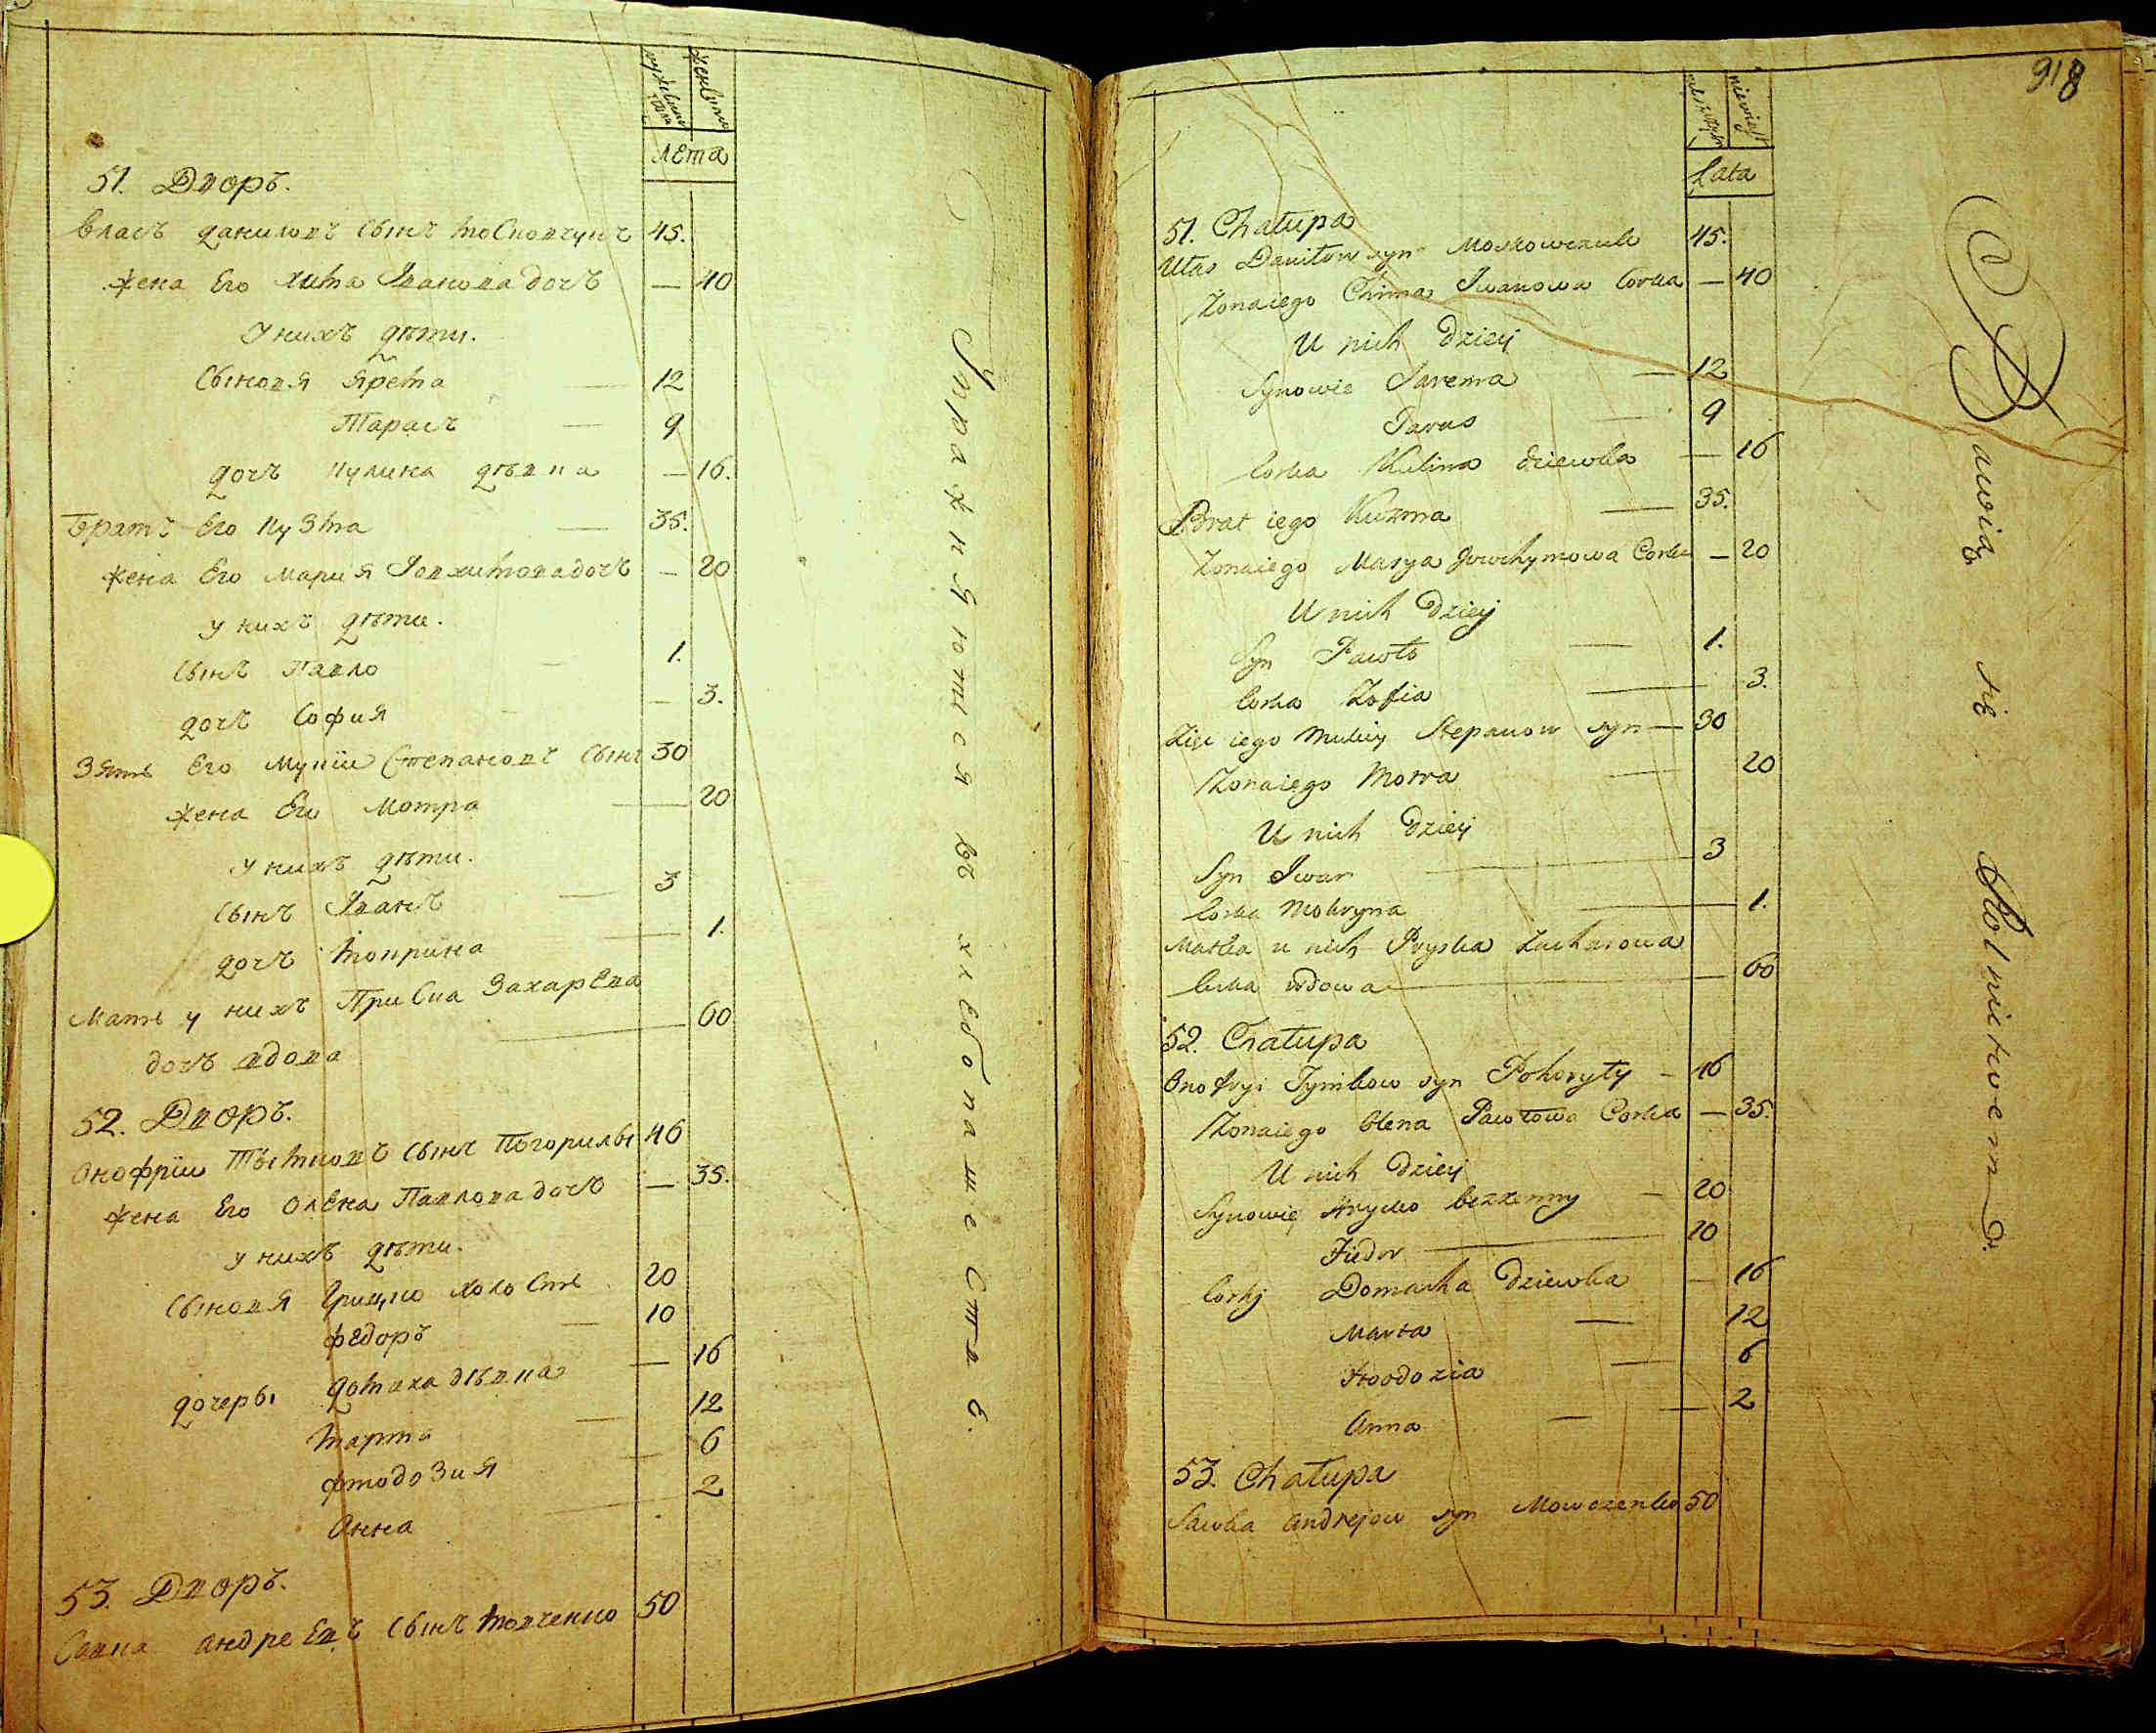 лета
51. Дворъ.
Власъ даниловъ сынъ Московчукъ 45.
жена Его Хима Іванова дочъ — 40
У нихъ дѣти.
Сыновя Ярема — 12
Тарасъ — 9
дочъ Кулина дѣвка — 16.
Братъ Его Кузма — 35.
жена Его Мария Іовхимова дочъ — 20
у нихъ дѣти.
сынъ Павло — 1.
дочъ София — 3.
Зять Его Мукіи Степановъ Сынъ 30
жена Его Мотра — 20
у нихъ дѣти.
сынъ Іванъ — 3
дочъ Мокрина — 1.
Мать у нихъ Приска Захарева
дочъ вдова — 60
52. Дворъ.
Онофріи Тымковъ сынъ Погорилы 46
жена Его Олена Павлова дочъ — 35.
у нихъ дѣти.
Сыновя Грицко холостъ 20
Федоръ — 10
дочеры Домаха дѣвка — 16
Марта — 12
Фтодозия — 6
Анна — 2
53. Дворъ.
Савка андреЕвъ сынъ Мовченко 50
Упражняются въ хлебопашествѣ.
918
Lata
51. Chałupa
Ułas Daniłow syn Moskowczuk 45.
Żona iego Chima Iwanowa Corka — 40
U nich Dzieci
Synowie Jarema — 12
Taras — 9
Corka Kulina dziewka — 16
Brat iego Kuzma — 35.
Żona iego Marya Jowchymowa Corka — 20
U nich Dzieci
Syn Pawło — 1.
Corka Zofia — 3.
Zięć iego Mukiy Stepanow syn — 30
Żona iego Motra — 20
U nich Dzieci
Syn Iwan — 3
Corka Mokryna — 1.
Matka u nich Pryska Zacharowa
Corka wdowa — 60
52. Chałupa
Onofryi Tymkow syn Pohoryły — 46
Żona iego Olena Pawłowa Corka — 35.
U nich Dzieci
Synowie Hrycko bezżenny — 20
Fiedor — 10
Corki Domacha Dziewka — 16
Marta — 12
Ftodozia — 6
Anna — 2
53. Chałupa
Sawka Andrejow syn Mowczenko 50
Bawią się Rolnictwem